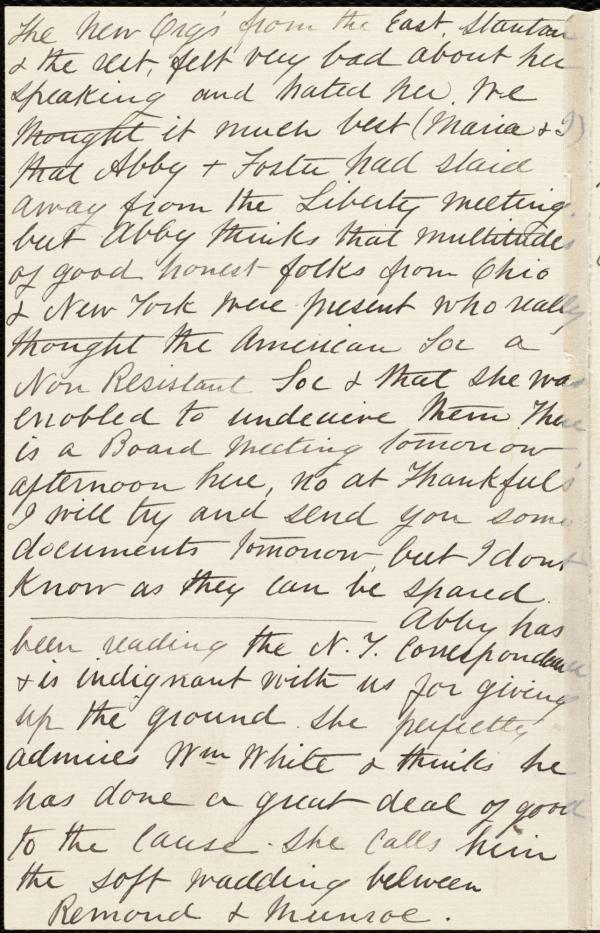 The New Org's from the East, Stanton
& the rest, felt very bad about her
speaking and hated her. We
thought it much best (Maria & I)
that Abby & Foster had staid
away from the Liberty meeting,
but Abby thinks that multitudes
of good honest folks from Ohio
& New York were present who really
thought the American Soc a
Non Resistant Soc & that she was
enobled to undecieve them. There
is a Board Meeting tomorrow
afternoon here, no at Thankful's
I will try and send you some
documents tomorrow, but I dont
know as they can be spared.
Abby has
been reading the N. Y. Correspondence
& is indignant with us for giving
up the ground. She perfectly
admires Wm White & thinks he
has done a great deal of good
to the cause. She calls him
the soft wadding between
Remond & Munroe.